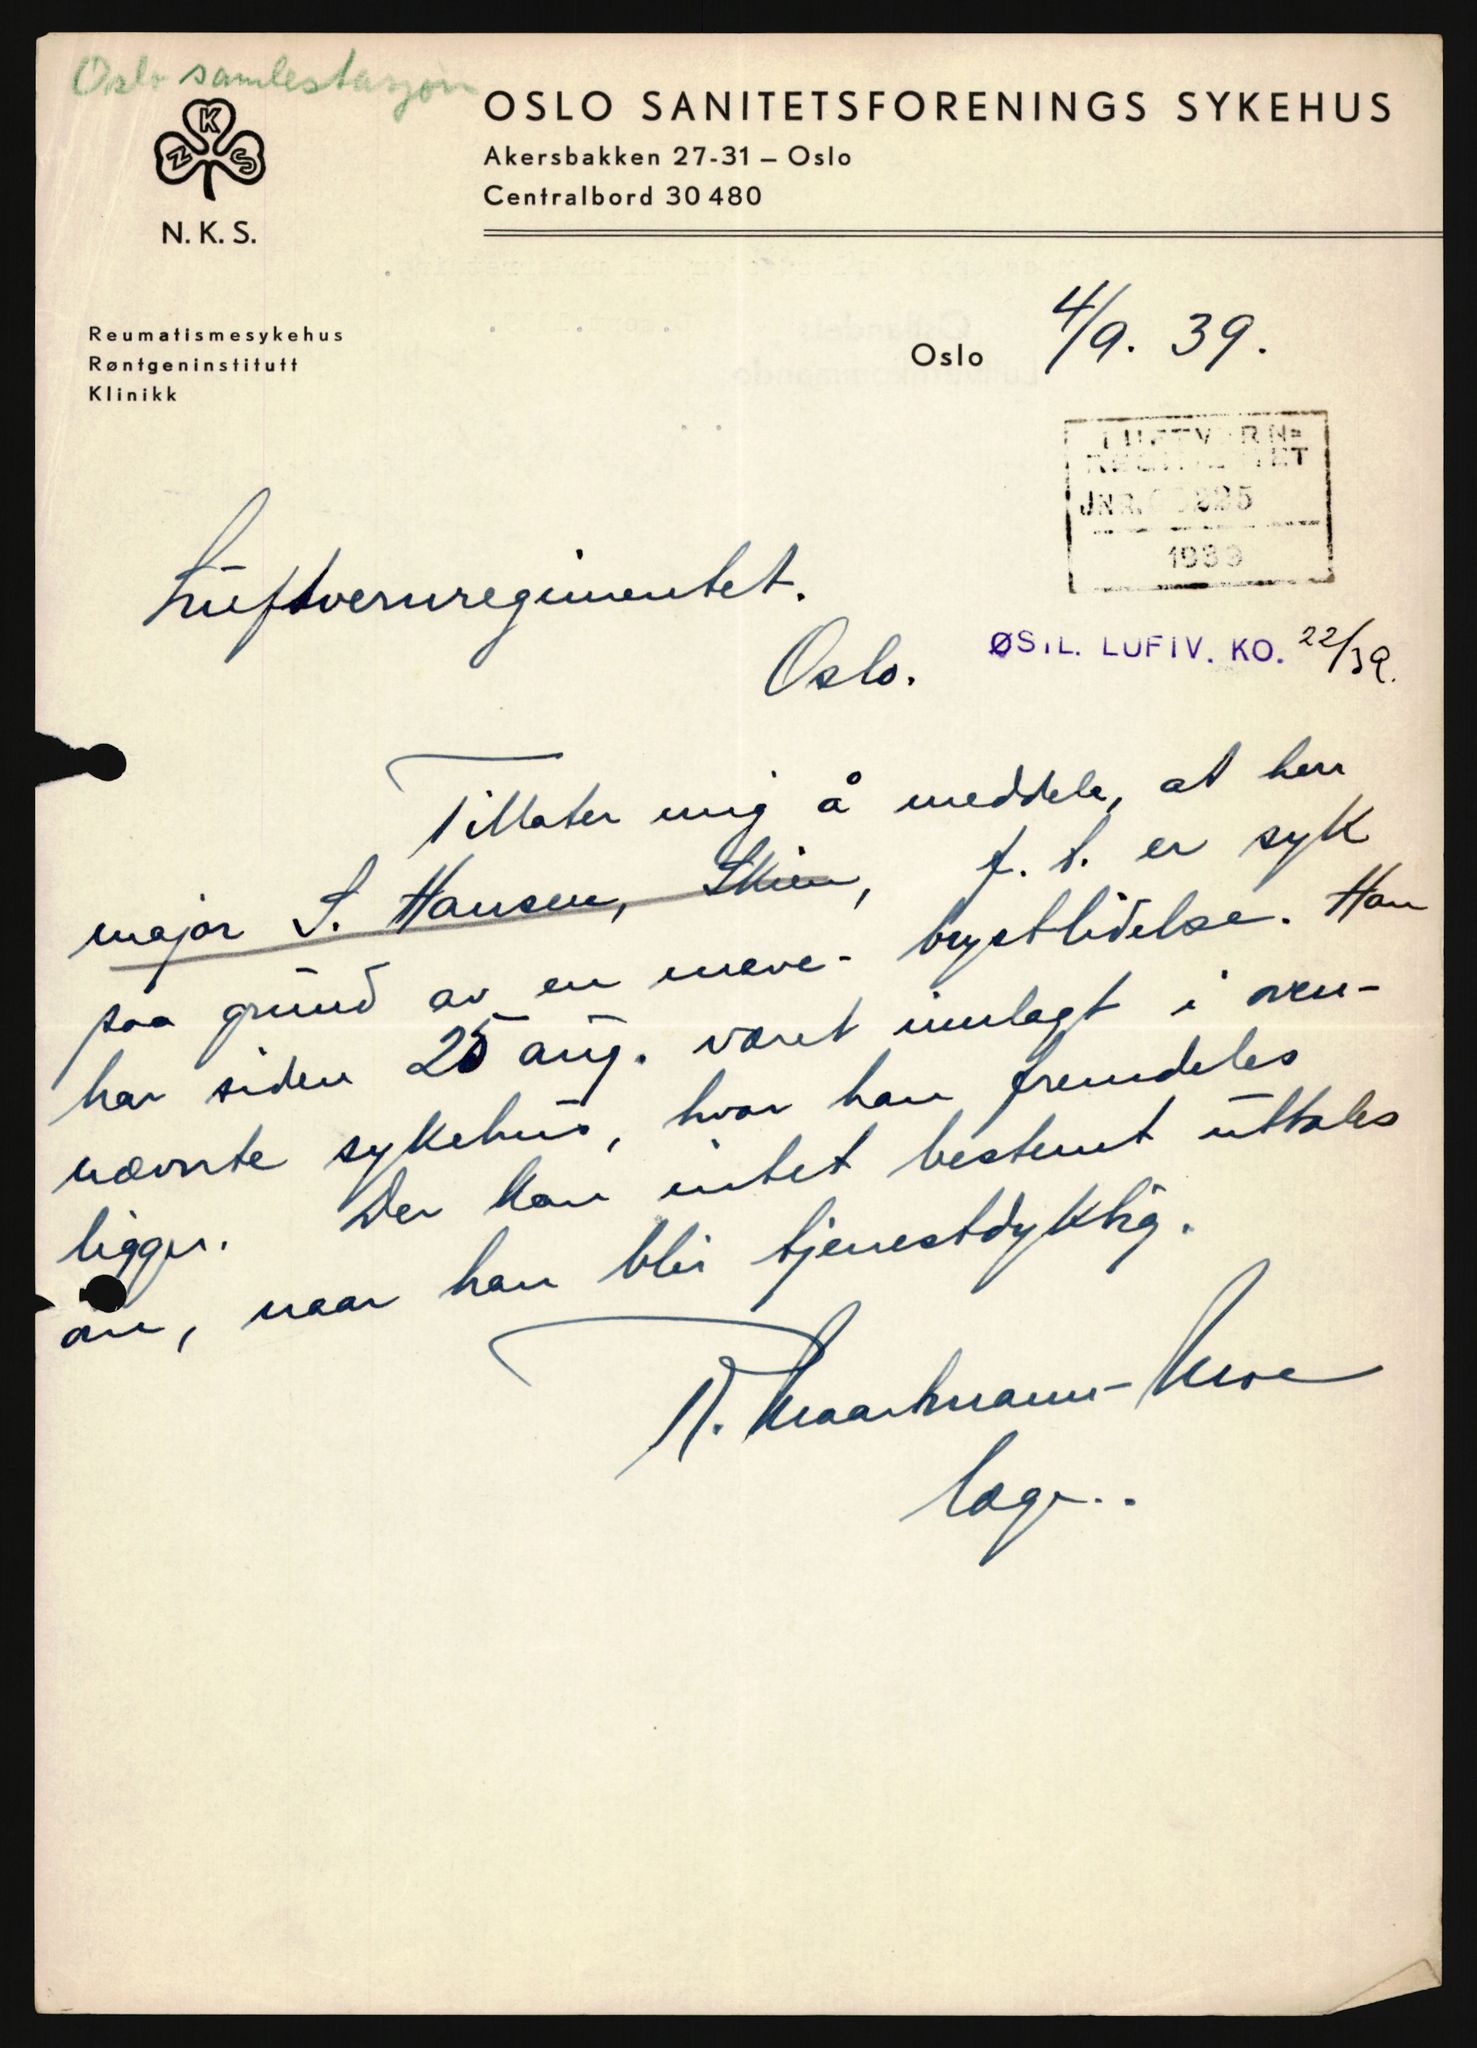 Oslo samlestasjon
OSLO SANITETSFORENINGS SYKEHUS
Akersbakken 27-31 – Oslo
Centralbord 30 480
K
N S
N. K. S.
Reumatismesykehus
Røntgeninstitutt
Klinikk
Oslo 4/9. 39.
LUFTVERN=
REGIMENTET
JNR.
1939
Luftvernregimentet.
Oslo.
ØSTL. LUFTV. KO. 22/39.
Tillater mig å meddele, at herr
major S. Hansen, Skien, f. t. er syk
paa grund av en mave- brystlidelse. Han
har siden 25 aug. været innlagt i oven-
nævnte sykehus, hvor han fremdeles
ligger. Der kan intet bestemt uttales
om, naar han blir tjenestdyktig.
Moe
læge..